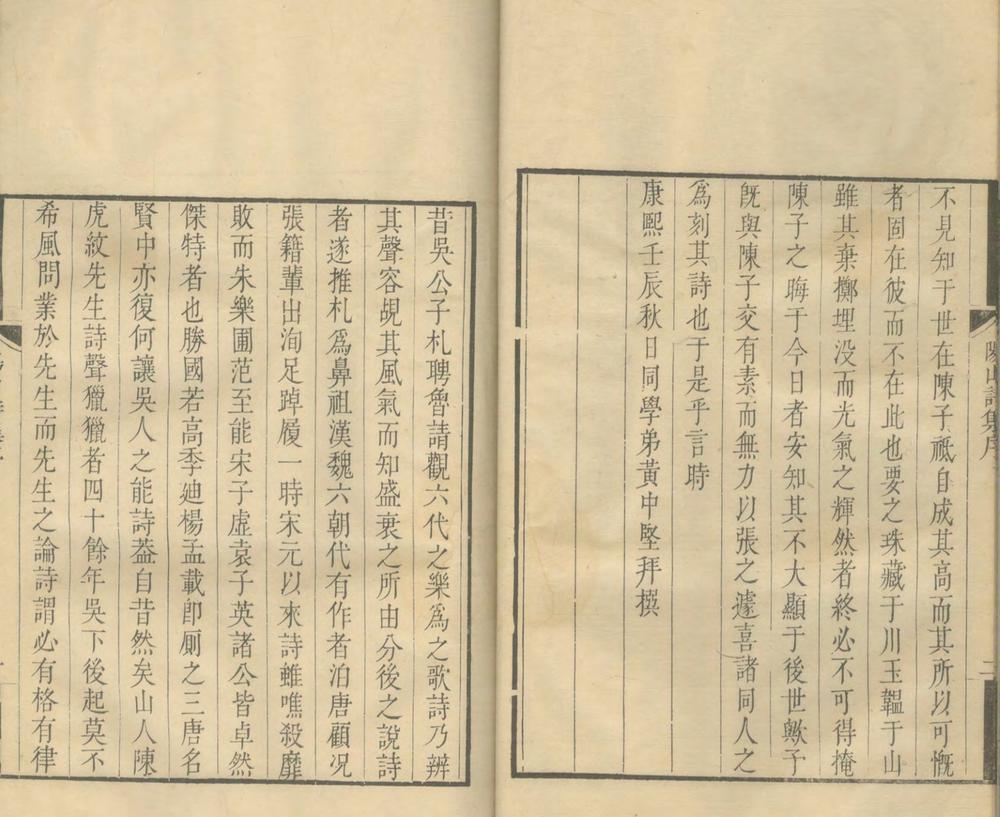 陽山詩集序
二
不見知于世在陳子祗自成其高而其所以可慨
者固在彼而不在此也要之珠藏于川玉韞于山
雖其棄擲埋没而光氣之輝然者終必不可得掩
陳子之晦于今日者安知其不大顯于後世歟予
旣與陳子交有素而無力以張之遽喜諸同人之
爲刻其詩也于是乎言時
康熙壬辰秋日同學弟黃中堅拜撰
昔吳公子札聘魯請觀六代之樂爲之歌詩乃辨
其聲容覘其風氣而知盛衰之所由分後之說詩
者遂推札爲鼻祖漢魏六朝代有作者洎唐顧况
張籍輩出洵足踔厲一時宋元以來詩雖噍殺靡
敗而朱樂圃范至能宋子虛袁子英諸公皆卓然
傑特者也勝國若高季廸楊孟載卽厠之三唐名
賢中亦復何讓吳人之能詩葢自昔然矣山人陳
虎紋先生詩聲獵獵者四十餘年吳下後起莫不
希風問業於先生而先生之論詩謂必有格有律